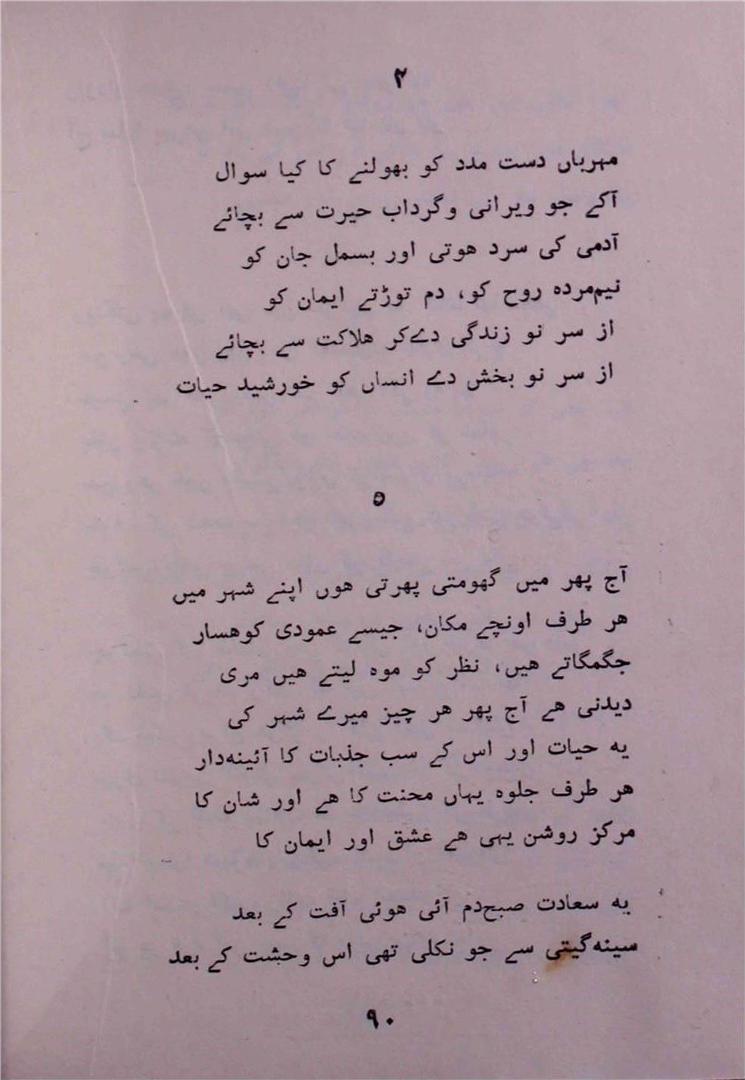 ۴
مہرباں دست مدد کو بھولنے کا کیا سوال
آکے جو ویرانی وگرداب حیرت سے بچائے
آدمی کی سرد ہوتی اور بسمل جان کو
نیم‌مردہ روح کو، دم توڑتے ایمان کو
از سر نو زندگی دے‌کر ہلاکت سے بچائے
از سر نو بخش دے انساں کو خورشید حیات
۵
آج پھر میں گھومتی پھرتی ہوں اپنے شہر میں
ہر طرف اونچے مکان، جیسے عمودی کوہسار
جگمگاتے ہیں، نظر کو موہ لیتے ہیں مری
دیدنی ہے آج پھر ہر چیز میرے شہر کی
یہ حیات اور اس کے سب جذبات کا آئینہ‌دار
ہر طرف جلوہ یہاں محنت کا ہے اور شان کا
مرکز روشن یہی ہے عشق اور ایمان کا
یہ سعادت صبح‌دم آئی ہوئی آفت کے بعد
سینہ‌گیتی سے جو نکلی تھی اس وحشت کے بعد
۹۰